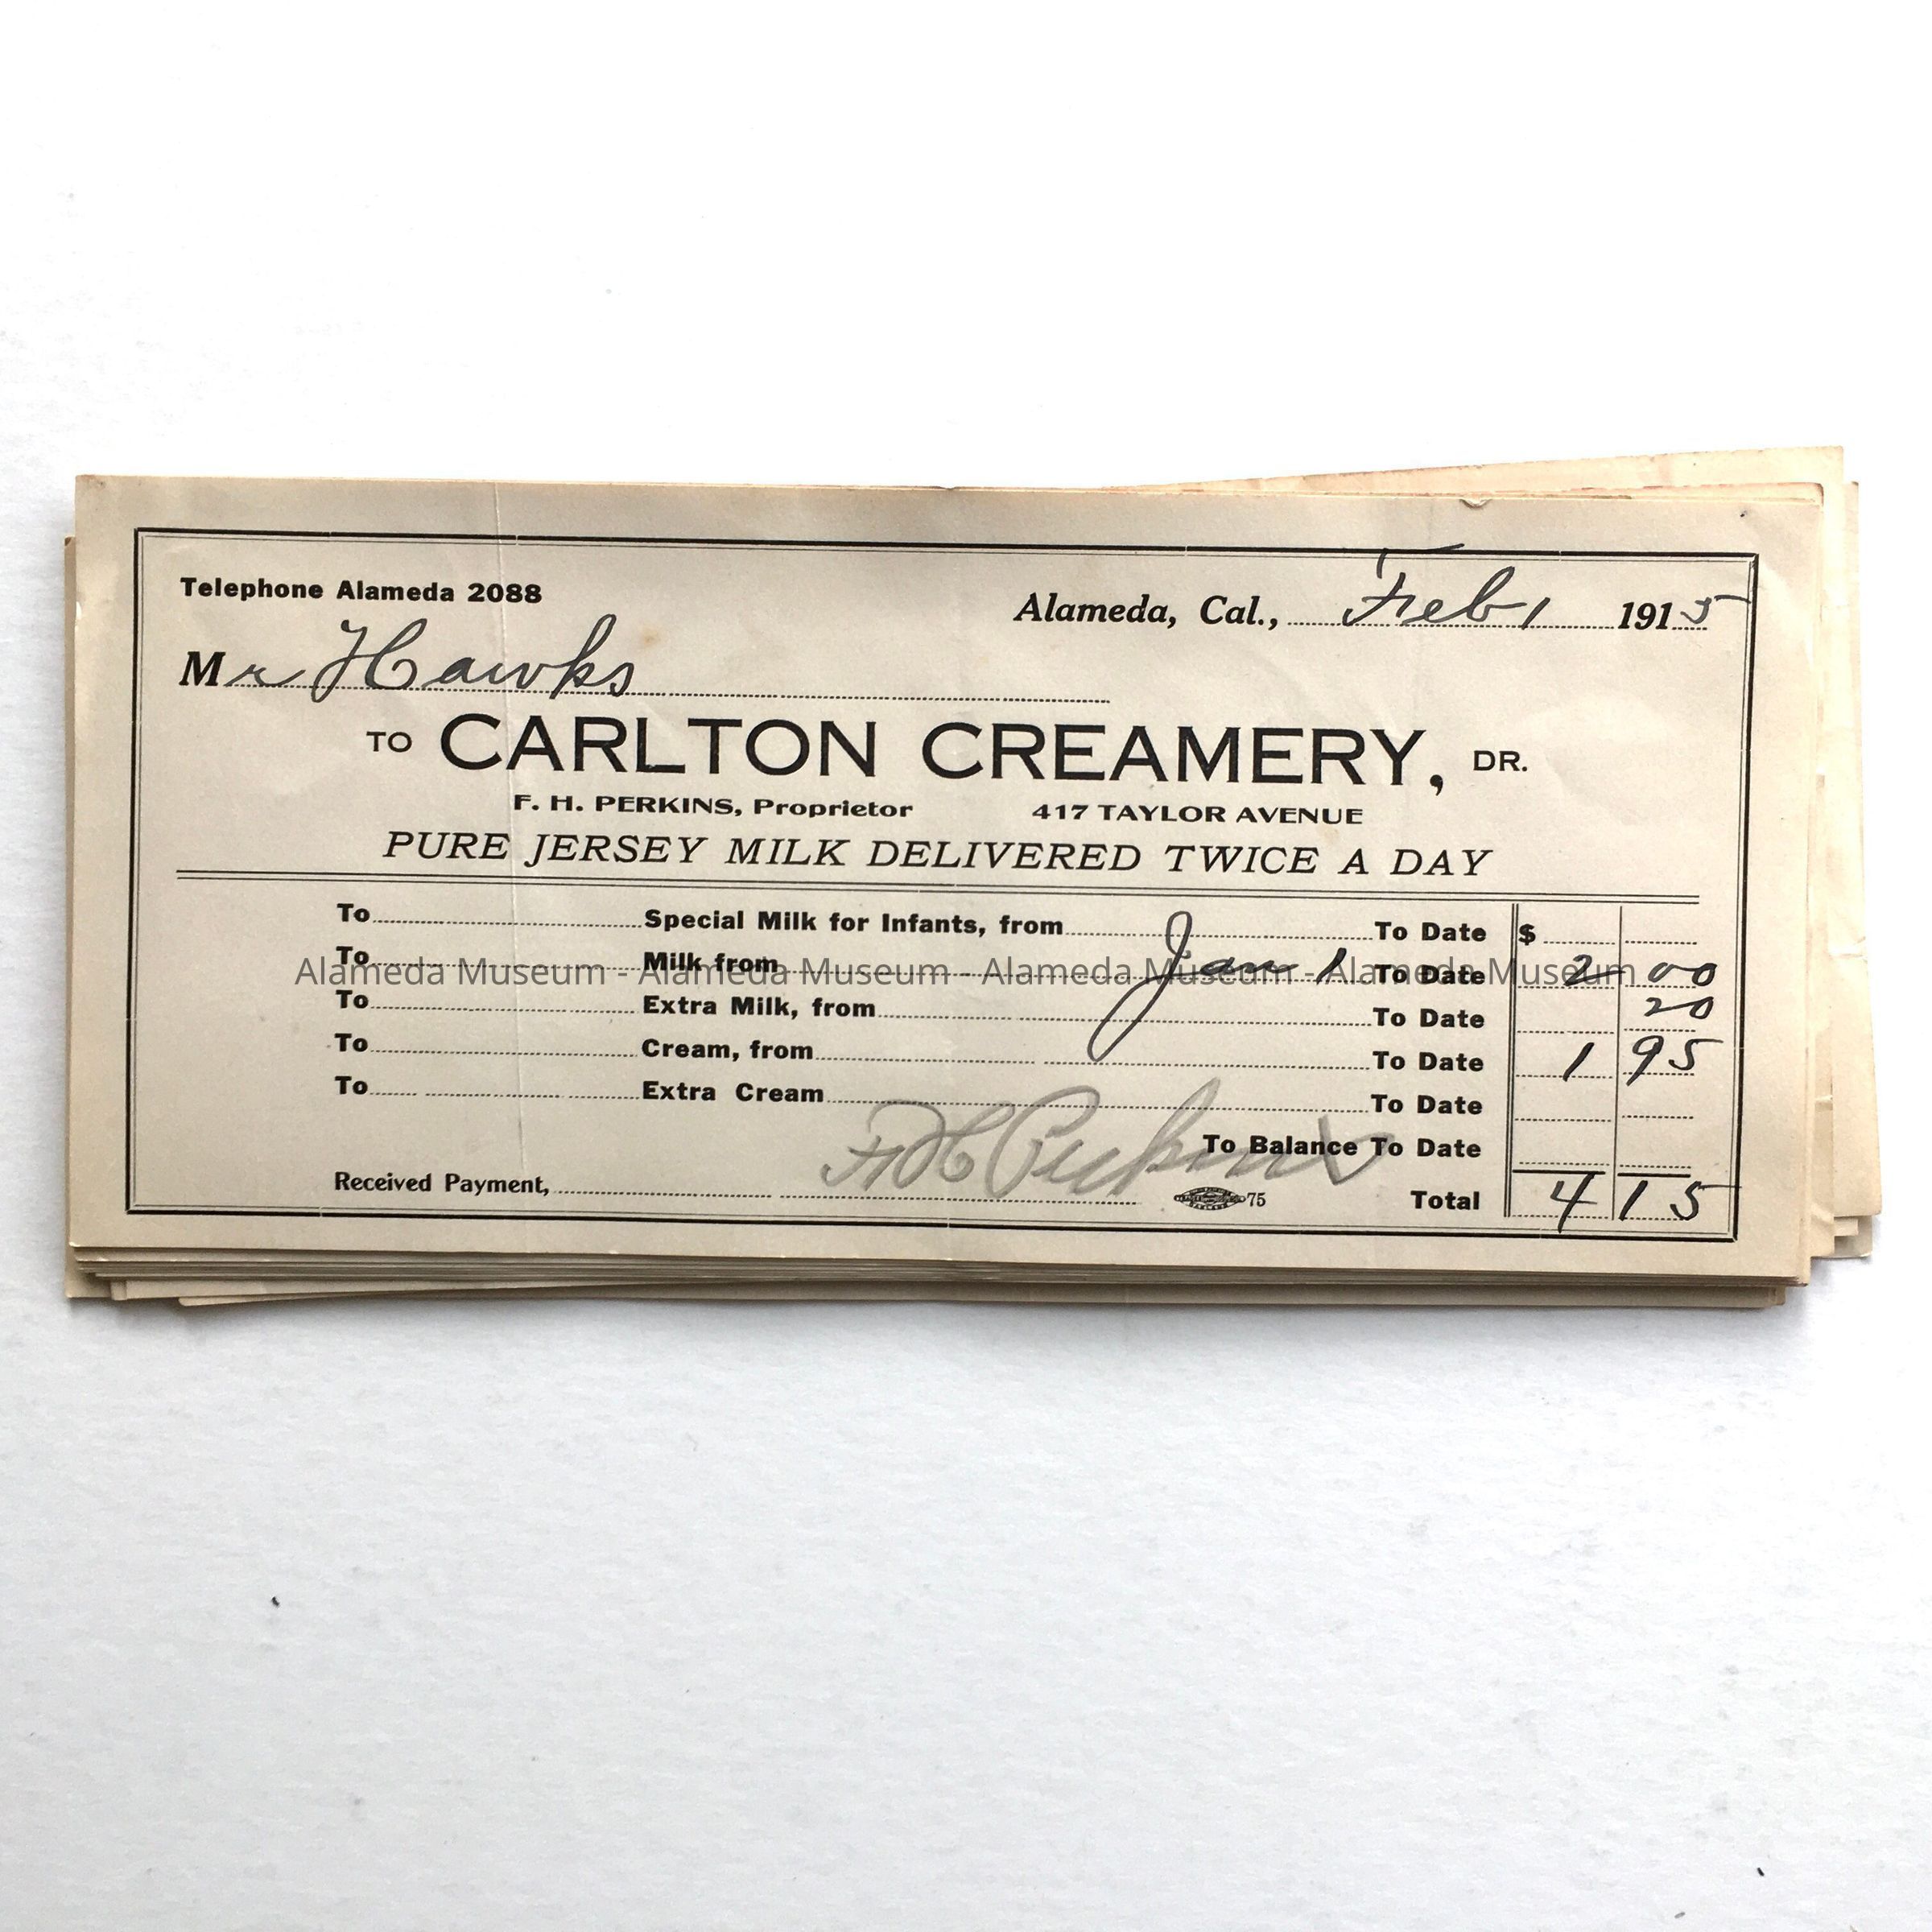 Telephone Alameda 2088
Alameda, Cal., Feb 1 1915
Mr Hawks
TO CARLTON CREAMERY, DR.
F. H. PERKINS, Proprietor 417 TAYLOR AVENUE
PURE JERSEY MILK DELIVERED TWICE A DAY
To Special Milk for Infants, from To Date $
To Milk from Jan 1 To Date 2 00
Alameda Museum - Alameda Museum - Alameda Museum - Alameda Museum
To Extra Milk, from To Date 20
To Cream, from To Date 1 95
To Extra Cream To Date
To Balance To Date
Received Payment, F H Perkins 75 Total 4 15